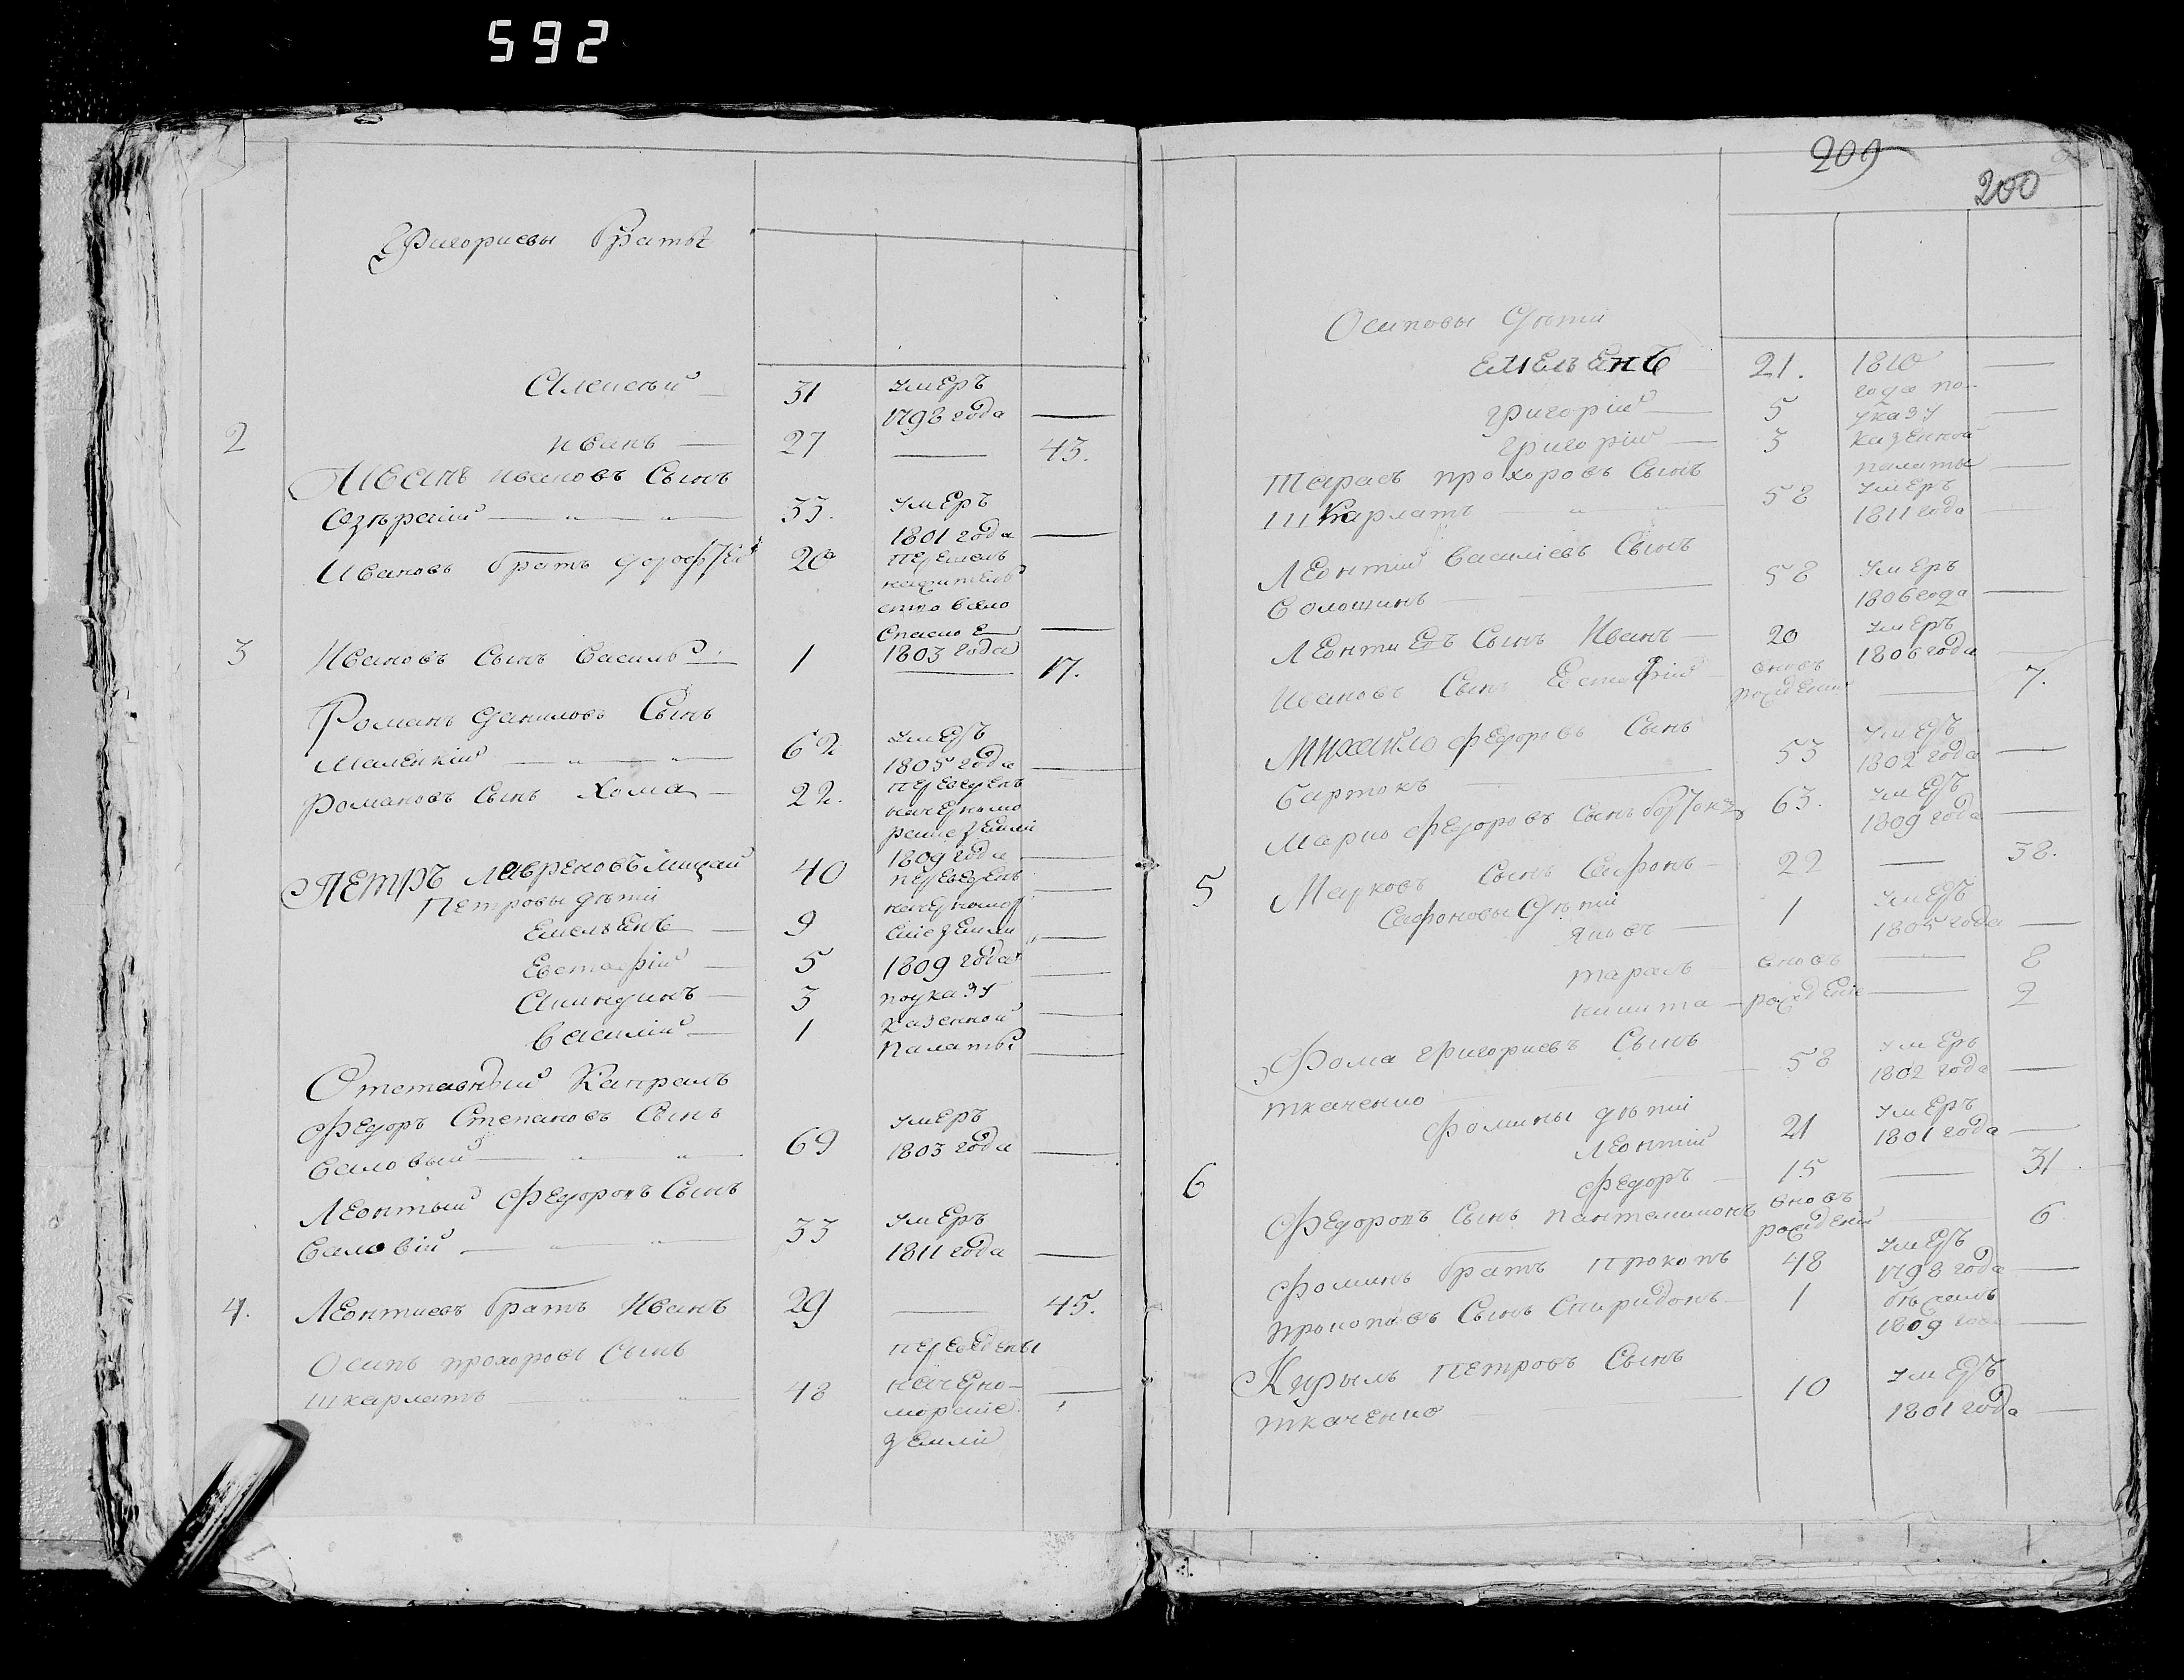 592
Григориевы братья
Алексей 31 умеръ
1798 года —
2 Иванъ — 27 — 43.
Иванъ Ивановъ Сынъ
33. умеръ
1801 года —
Ивановъ братъ Дорофей 20
Спаское —
3 Ивановъ Сынъ Василь 1 1803 года
— 17.
Романъ Даниловъ Сынъ
Маленкий — 62 умеръ
1805 года —
Романовъ Сынъ Хома — 22. переведенъ
начерномо
рские земли
1809 года —
Петръ Лавреновъ 40 переведенъ —
Петровы дети начерномор
Емельянъ — 9 ские земли —
Евстафій — 5 1809 года —
Акиндинъ — 3 поуказу
Василій — 1 казенной —
палаты —
Отставный Капралъ
Федоръ Степановъ Сынъ
69 умеръ
1803 года —
Леонтый Федоровъ Сынъ
33 умеръ
1811 года —
4. Леонтиевъ братъ Иванъ 29 — 45.
Осипъ прохоровъ Сынъ переведены
шкарлатъ — 48 начерно- —
морские
земли
209
200
Осиповы дѣти
Емельянъ 21. 1810 —
года по-
григорій — 5 указу —
григорій — 3 казенной
палаты —
Тарасъ прохоровъ Сынъ
шкарлатъ 58 умеръ
1811 года —
Леонтий Василиевъ Сынъ
Волошинъ — 58 умеръ
1806 года —
Леонтиевъ Сынъ Иванъ — 20 умеръ
1806 года —
Ивановъ Сынъ Евстафій вновь
рожденный — 7.
Михайло Федоровъ Сынъ
Бартокъ — 53 умеръ
1802 года —
Марко Федоровъ Сынъ 63. умеръ
1809 года —
5 Марковъ Сынъ Сафонъ — 22 — 38.
Сафоновы Дѣти
Яковъ — 1 умеръ
1805 года —
Тарасъ — вновь — 8
никита — рожденіе — 2
Фома григориевъ Сынъ
ткаченко — 58 умеръ
1802 года —
Фомины дѣти
Леонтій 21 умеръ
1801 года —
6 Федоръ — 15 — 31.
Федоровъ Сынъ пантелимонъ вновь
рожденій — 6
Фоминъ братъ прокопъ 48 умеръ
1798 года —
прокоповъ Сынъ Спиридонъ — 1
1809 года —
Кирылъ Петровъ Сынъ
ткаченко — 10 умеръ
1801 года —